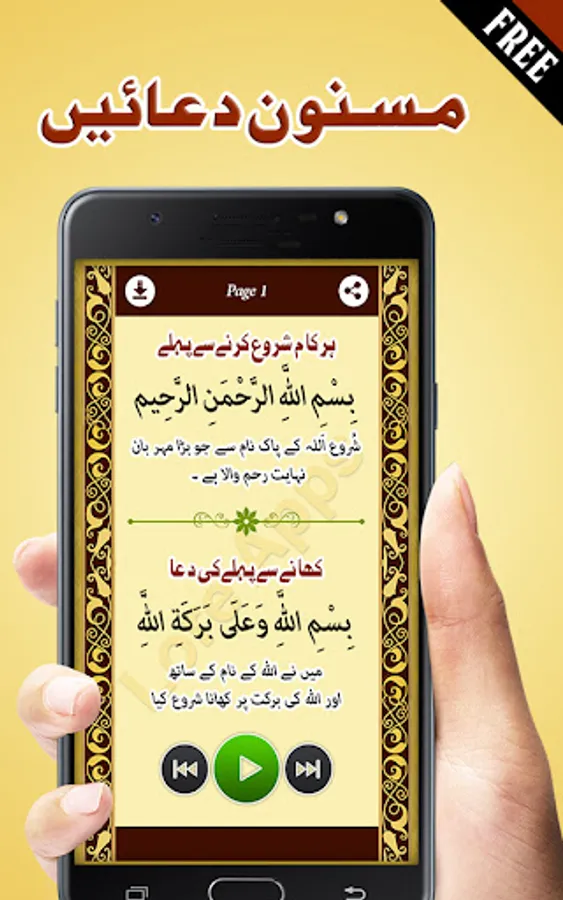 FREE
مسنون دعائیں
Page 1
ہر کام شروع کرنے سے پہلے
بِسْمِ اللَّهِ الرَّحْمَنِ الرَّحِيم
شُروع اَللہ کے پاک نام سے جو بڑا مہر بان
نہایت رحم والا ہے ۔
کھانے سے پہلے کی دعا
بِسْمِ اللَّهِ وَعَلَى بَرَكَةِ اللَّهِ
میں نے اللہ کے نام کے ساتھ
اور اللہ کی برکت پر کھانا شروع کیا
Love Apps